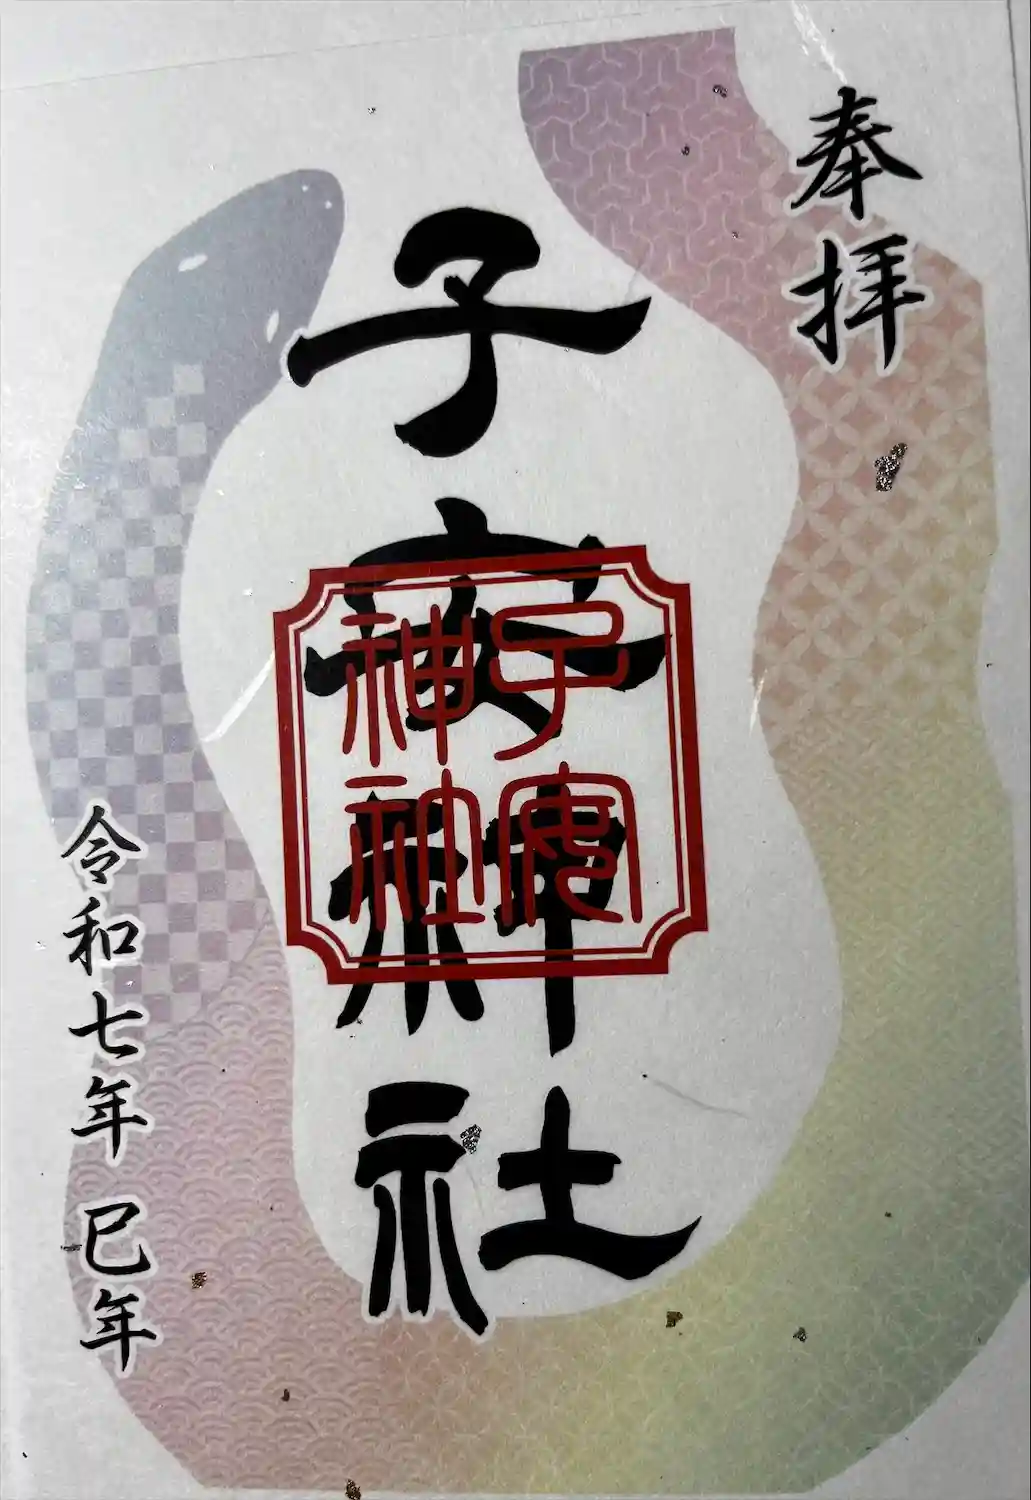 奉拝
子安神社
子安神社
令和七年 巳年